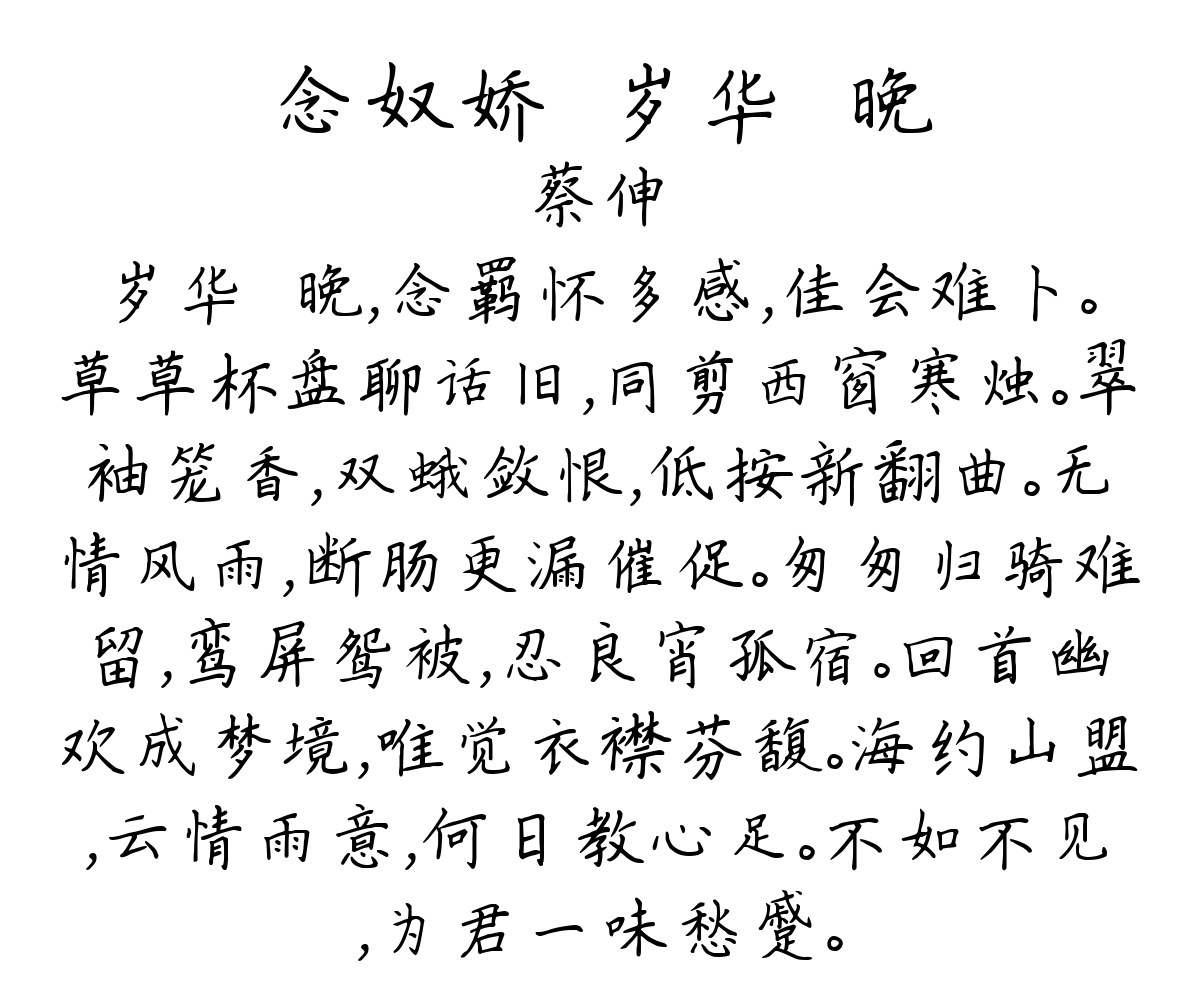 念奴娇 岁华 晚
蔡伸
岁华 晚,念羁怀多感,佳会难卜。
草草杯盘聊话旧,同剪西窗寒烛。翠
袖笼香,双蛾敛恨,低按新翻曲。无
情风雨,断肠更漏催促。匆匆归骑难
留,鸾屏鸳被,忍良宵孤宿。回首幽
欢成梦境,唯觉衣襟芬馥。海约山盟
,云情雨意,何日教心足。不如不见
,为君一味愁蹙。